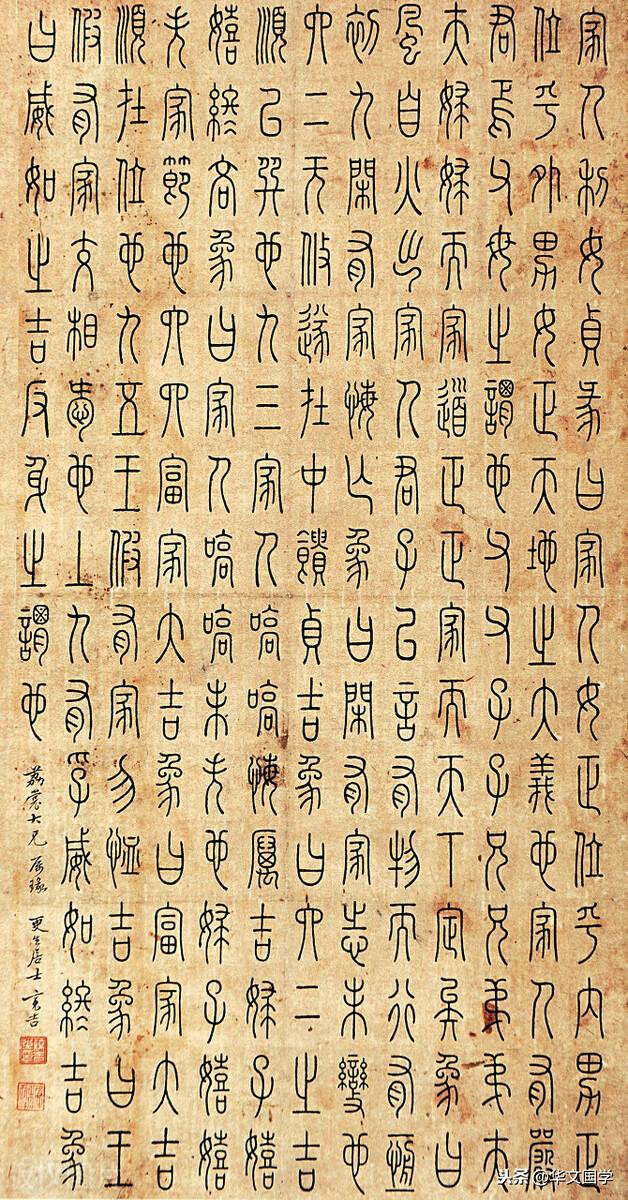 家人利女貞彖曰家人女正位乎内男正
位乎外男女正天地之大義也家人有嚴
君焉父母之謂也父父子子兄兄弟弟夫
夫婦婦而家道正正家而天下定矣象曰
風自火出家人君子以言有物而行有恆
初九閑有家悔亡象曰閑有家志未變也
六二无攸遂在中饋貞吉象曰六二之吉
順以巽也九三家人嗃嗃悔厲吉婦子嬉
嬉終吝象曰家人嗃嗃未失也婦子嬉嬉
失家節也六四富家大吉象曰富家大吉
順在位也九五王假有家勿恤吉象曰王
假有家交相愛也上九有孚威如終吉象
曰威如之吉反身之謂也
荔裳大兄屬瑑 更生居士亮吉
头条@华文国学